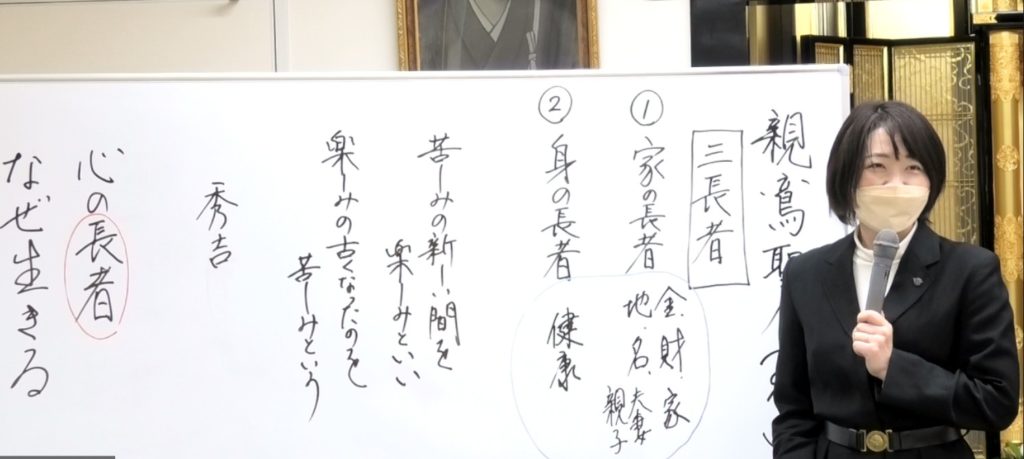 親鸞聖人
三長者
① 家の長者
金・財・家
地・名・夫妻
親子
② 身の長者
健康
苦しみの新しい間を
楽しみといい
楽しみの古くなったのを
苦しみという
秀吉
心の長者
なぜ生きる